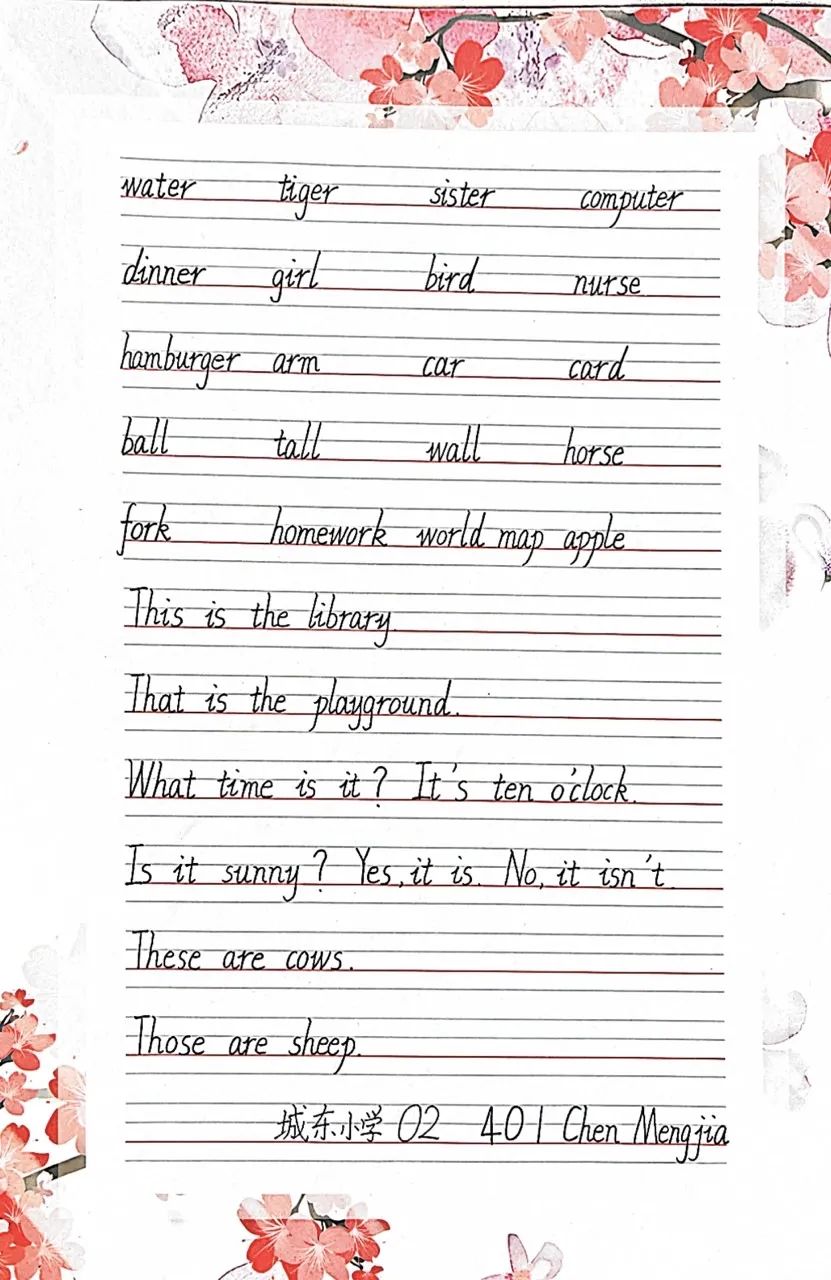 water tiger sister computer
dinner girl bird nurse
hamburger arm car card
ball tall wall horse
fork homework world map apple
This is the library
That is the playground.
What time is it? It's ten o'clock.
Is it sunny? Yes, it is. No, it isn't.
These are cows.
Those are sheep.
城东小学 02 401 Chen Mengjia